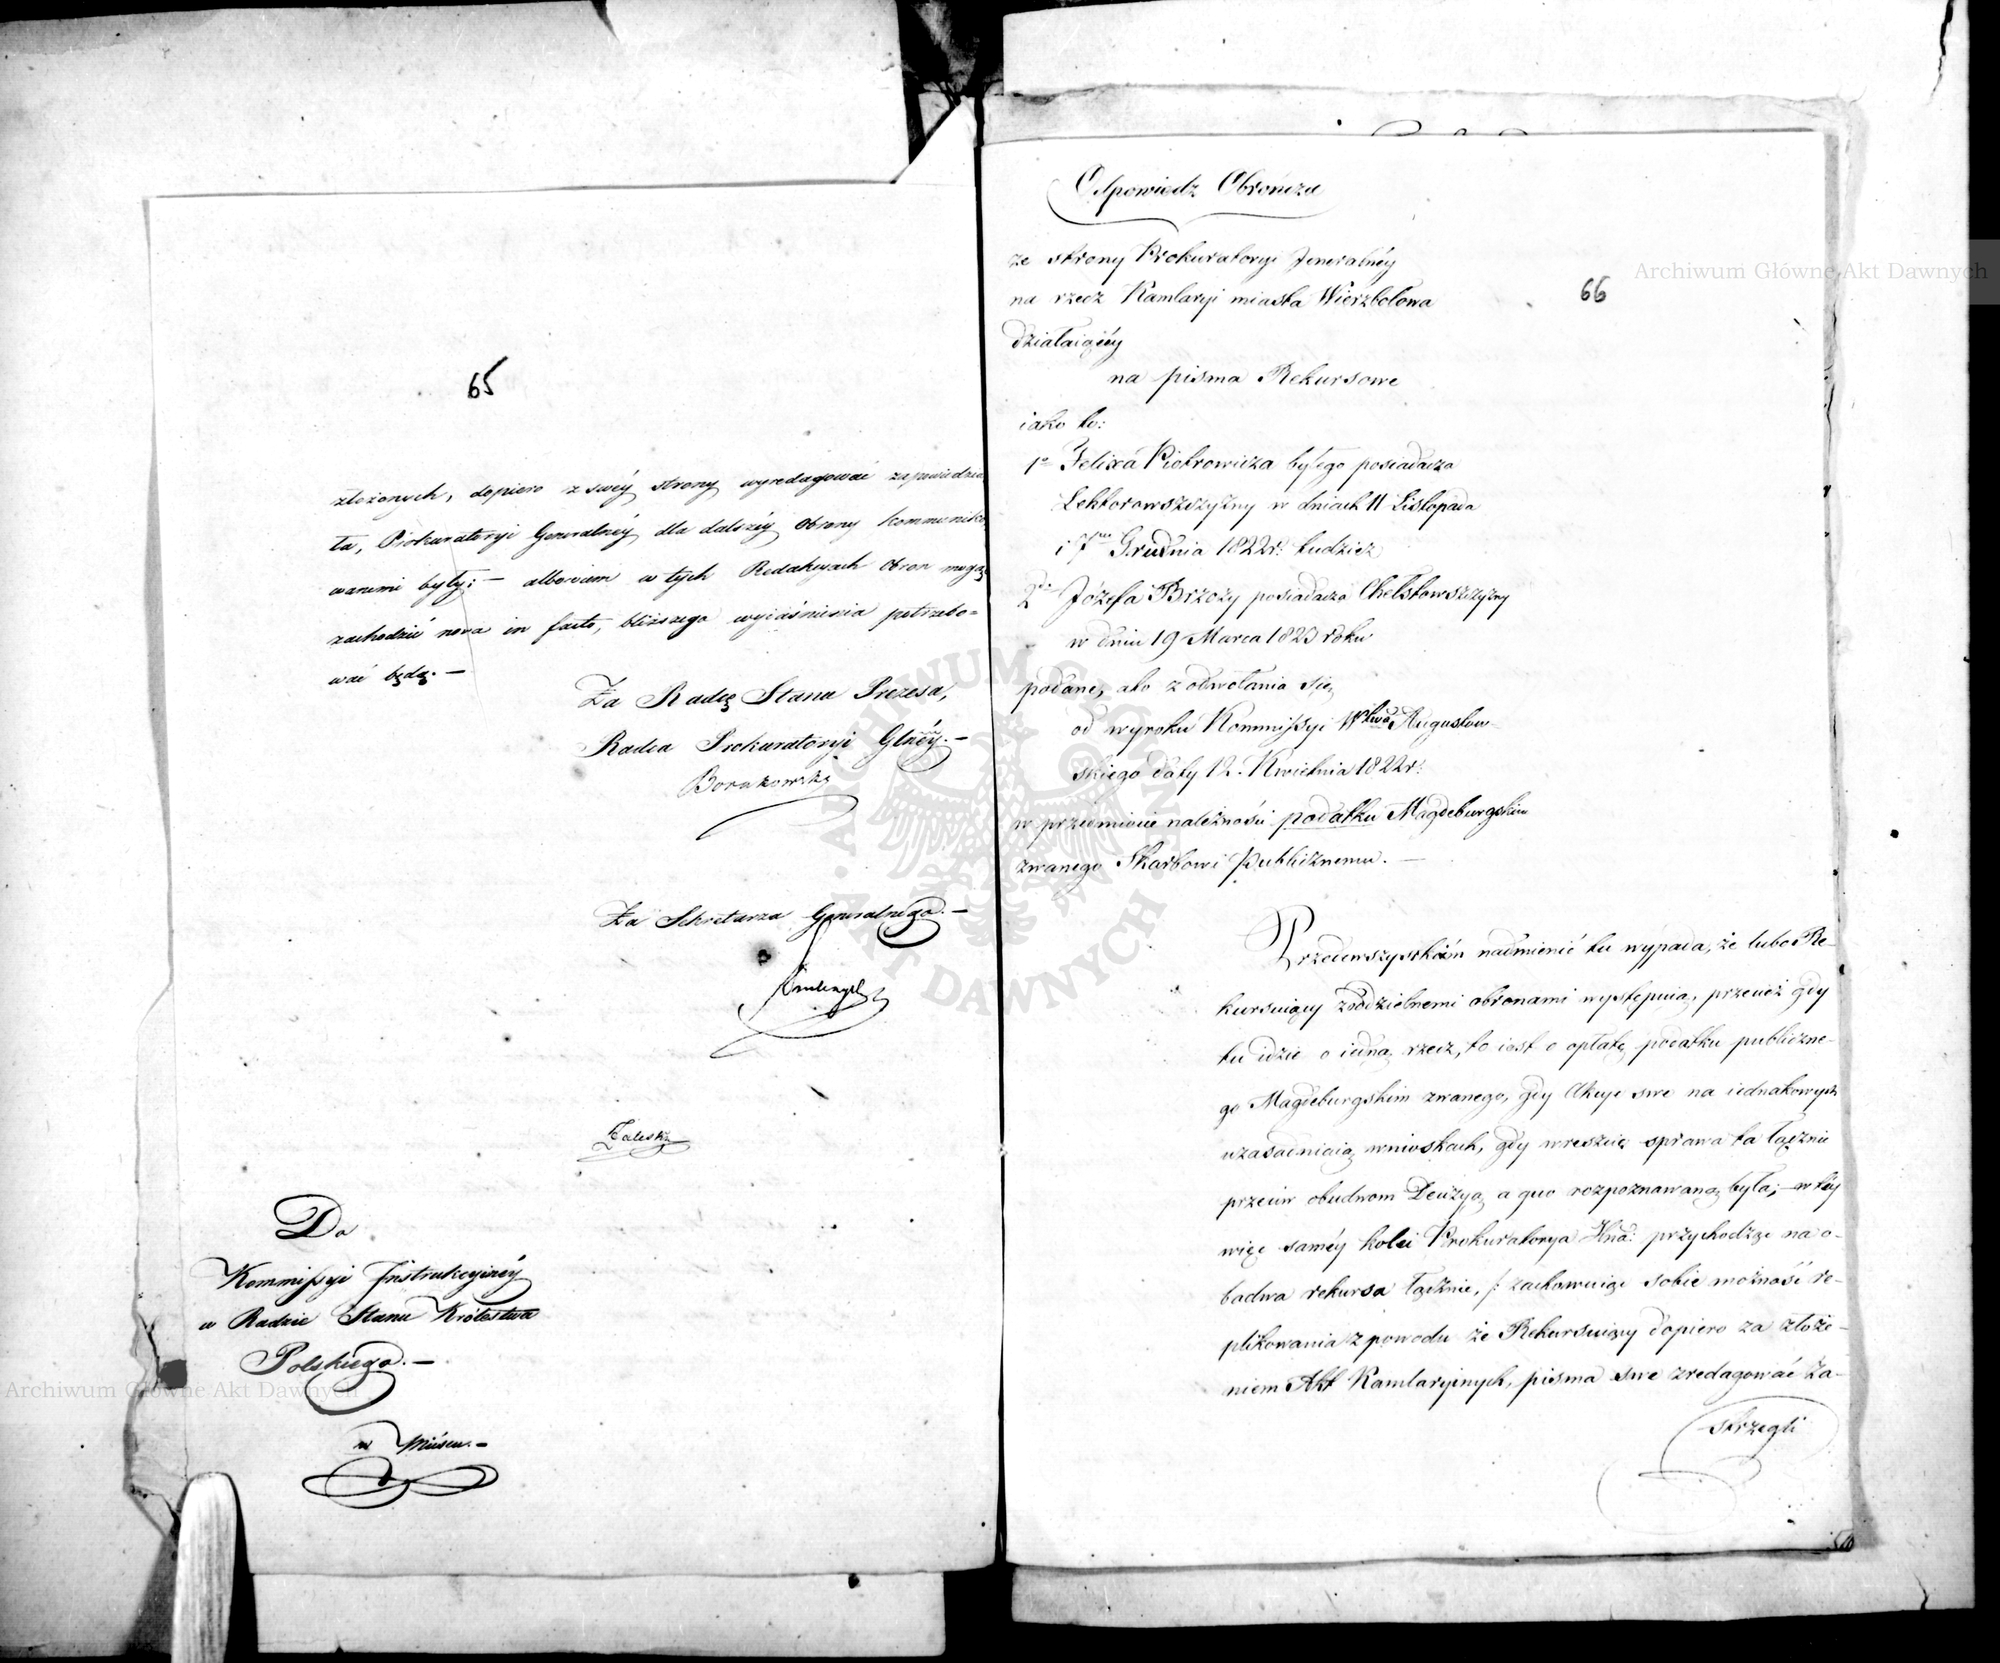 65
złożonych, dopiero z swéy strony wyredagować zapowiedzia
ła, Prokuratoryi Generalnéy dla dalszéy Obrony kommuniko
wanemi były; — albowiem w tych Redakcyach Obron mogą
zachodzić nova in facto, bliższego wyiaśnienia potrzebo-
wać będą. —
Za Radcę Stanu Prezesa,
Radca Prokuratoryi Glnéy. —
Za Sekretarza Generalnego. —
Zaleski
Do
Kommissyi Instrukcyinéy
w Radzie Stanu Królestwa
Polskiego. —
w Mieście. —
66
Odpowiedz Obrończa
ze strony Prokuratoryi Jeneralnéy
na rzecz Kamlaryi miasta Wierzbołowa
działaiącéy
na pisma Rekursowe
iako to:
1o Felixa Piotrowicza byłego posiadacza
Lektorowszczyzny w dniach 11 Listopada
i 7mo Grudnia 1822 r: tudzież
2do Józefa Brzozy posiadacza Chełstowszczyzny
w dniu 19 Marca 1823 roku
podane, ako z odwołania się
od wyroku Kommissyi Wztwa Augustow-
skiego daty 12. Kwietnia 1822 r:
w przedmiocie należności podatku Magdeburgskim
zwanego Skarbowi Publicznemu. —
Przedewszystkiém nadmienić tu wypada, że lubo Re-
kursuiący z oddzielnemi obronami występuią, przecież gdy
tu idzie o iedną rzecz, to iest o opłatę podatku publiczne-
go Magdeburgskim zwanego, gdy Akcye swe na iednakowych
uzasadniaią wnioskach, gdy wreszcie sprawa ta łącznie
przeciw obudwom Decyzyą a quo rozpoznawaną była; — w téy
więc saméy kolei Prokuratorya Jlna: przychodząc na o-
badwa rekursa łącznie, /: zachowuiąc sobie możność re-
plikowania z powodu że Rekursuiący dopiero za złoże-
niem Akt Kamlaryinych, pisma swe zredagować za-
strzegli
Archiwum Główne Akt Dawnych
Archiwum Główne Akt Dawnych
ARCHIWUM GŁÓWNE AKT DAWNYCH W WARSZAWIE